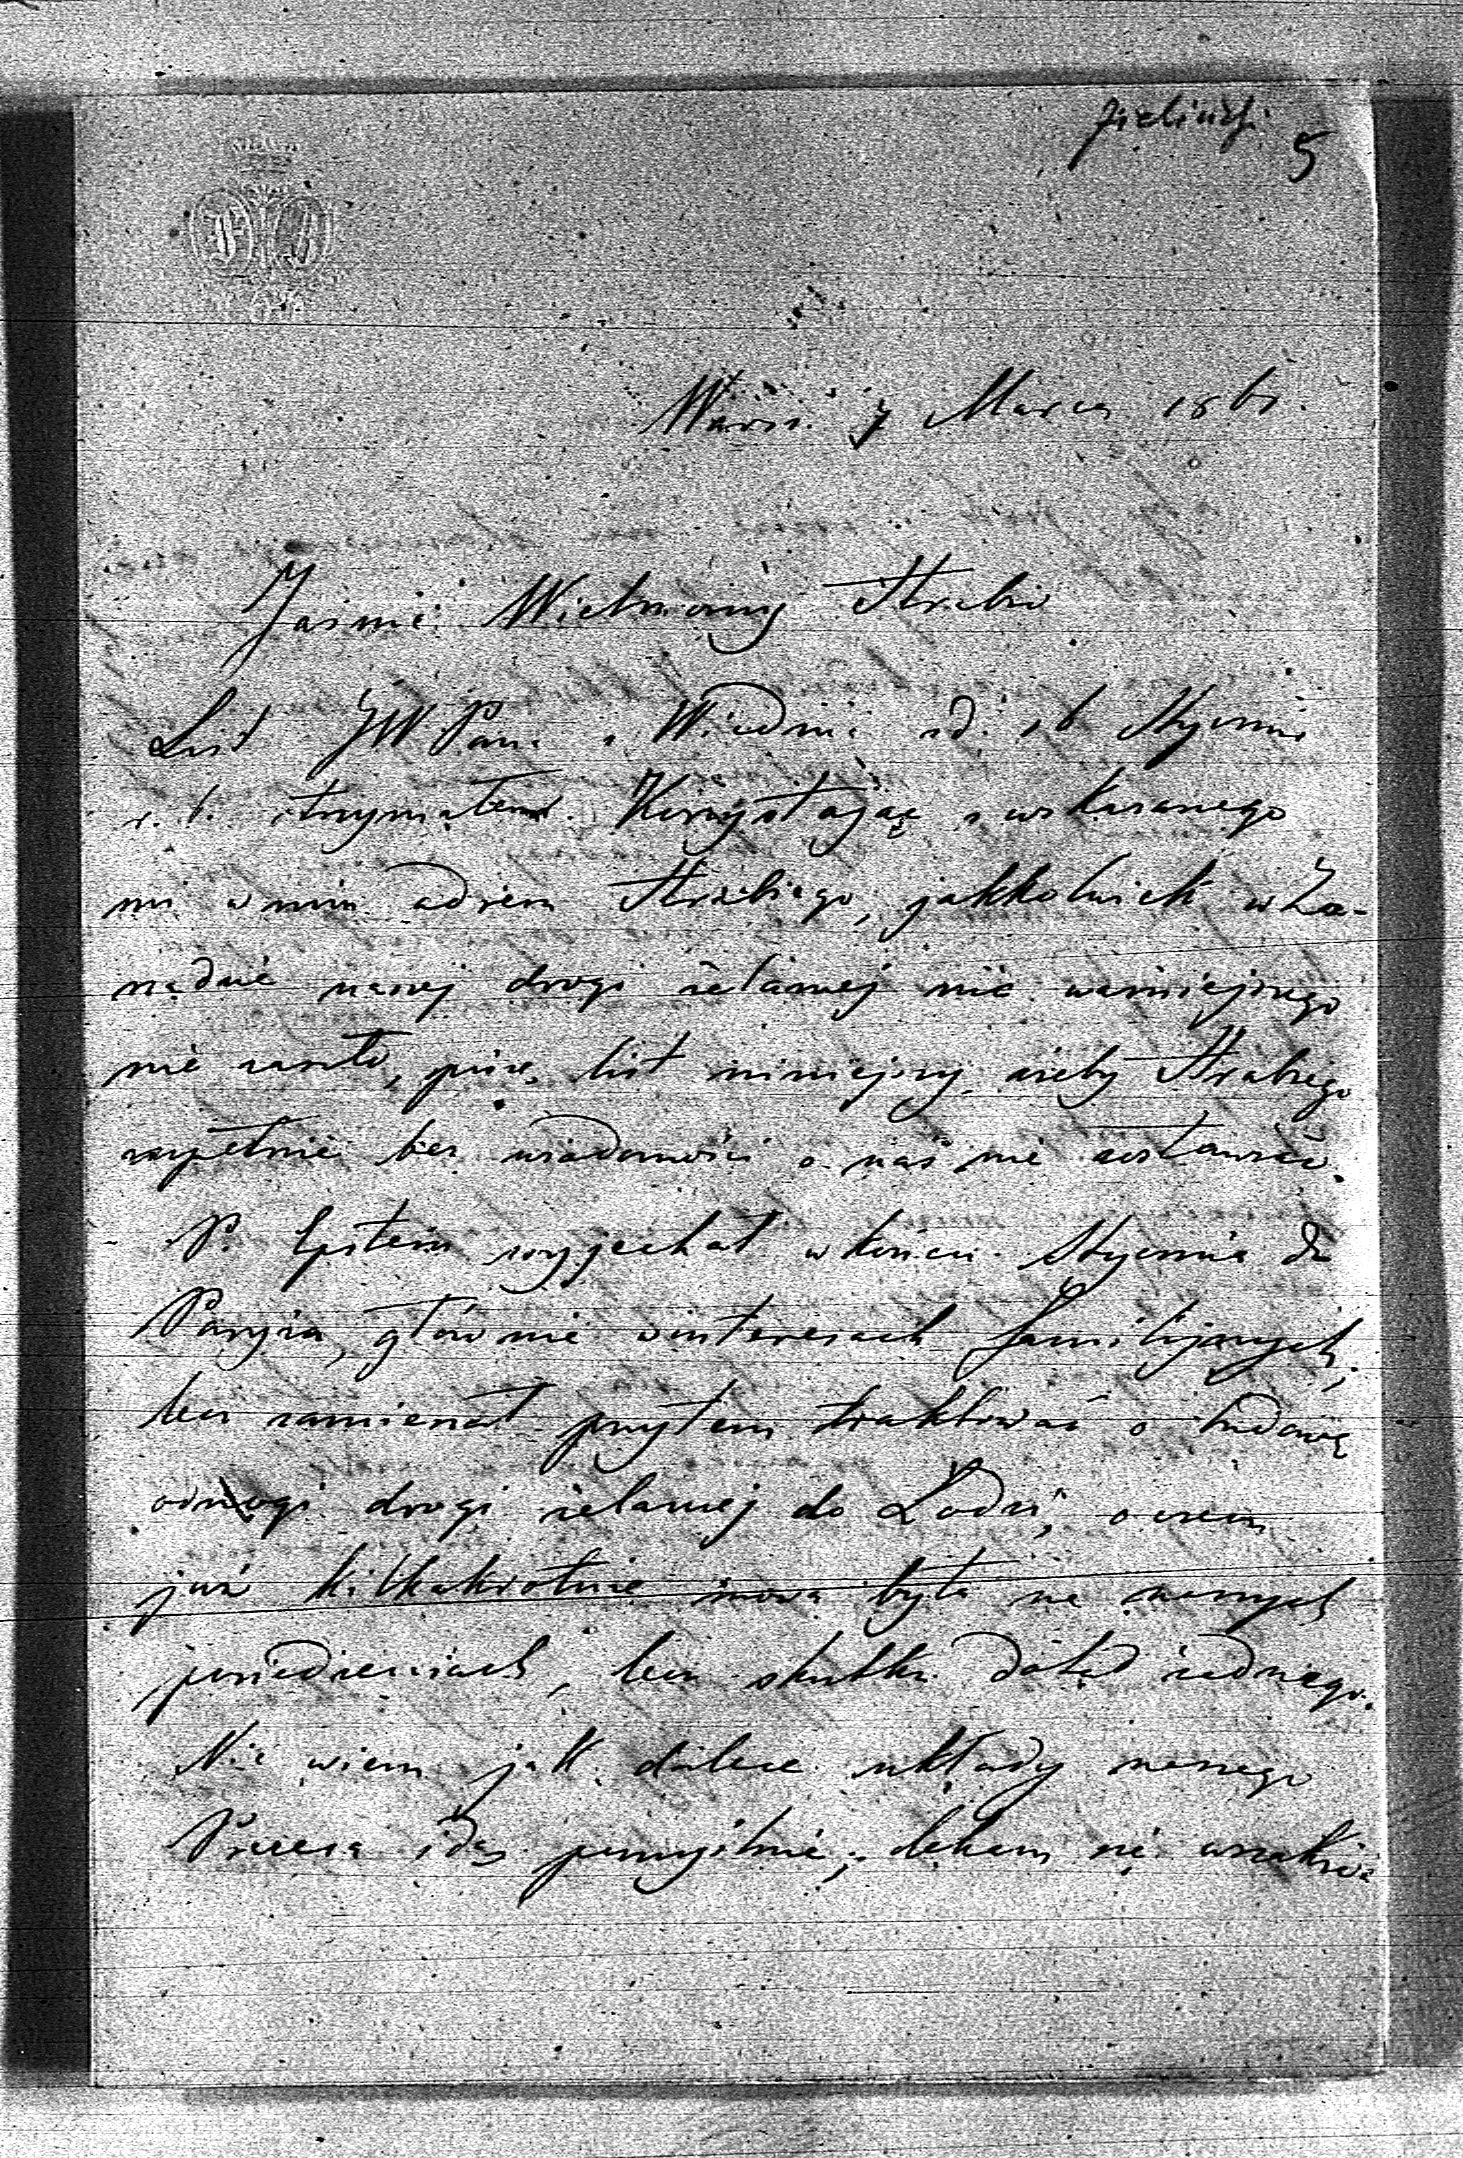 Zieliński
5
Warsz. 7 Marca 186
Jaśnie Wielmożny Hrabio
List JWPana z Wiednia d. 16 Stycznia
r. b. otrzymałem. Korzystając z wskazanego
mi w nim adresu Hrabiego, jakkolwiek w Za-
rządzie naszej drogi żelaznej nic ważniejszego
nie zaszło, piszę list niniejszy żeby Hrabiego
zupełnie bez wiadomości o nas nie zostawiać.
P. Epstein wyjechał w końcu Stycznia do
Paryża, głównie w interesach familijnych,
lecz zamierzał przytem traktować o budowę
odnogi drogi żelaznej do Łodzi, o czem
już kilkakrotnie mowa była na naszych
posiedzeniach, lecz skutku dotąd żadnego.
Nie wiem jak dalece układy naszego
Prezesa idą pomyślnie, lękam się wszakże